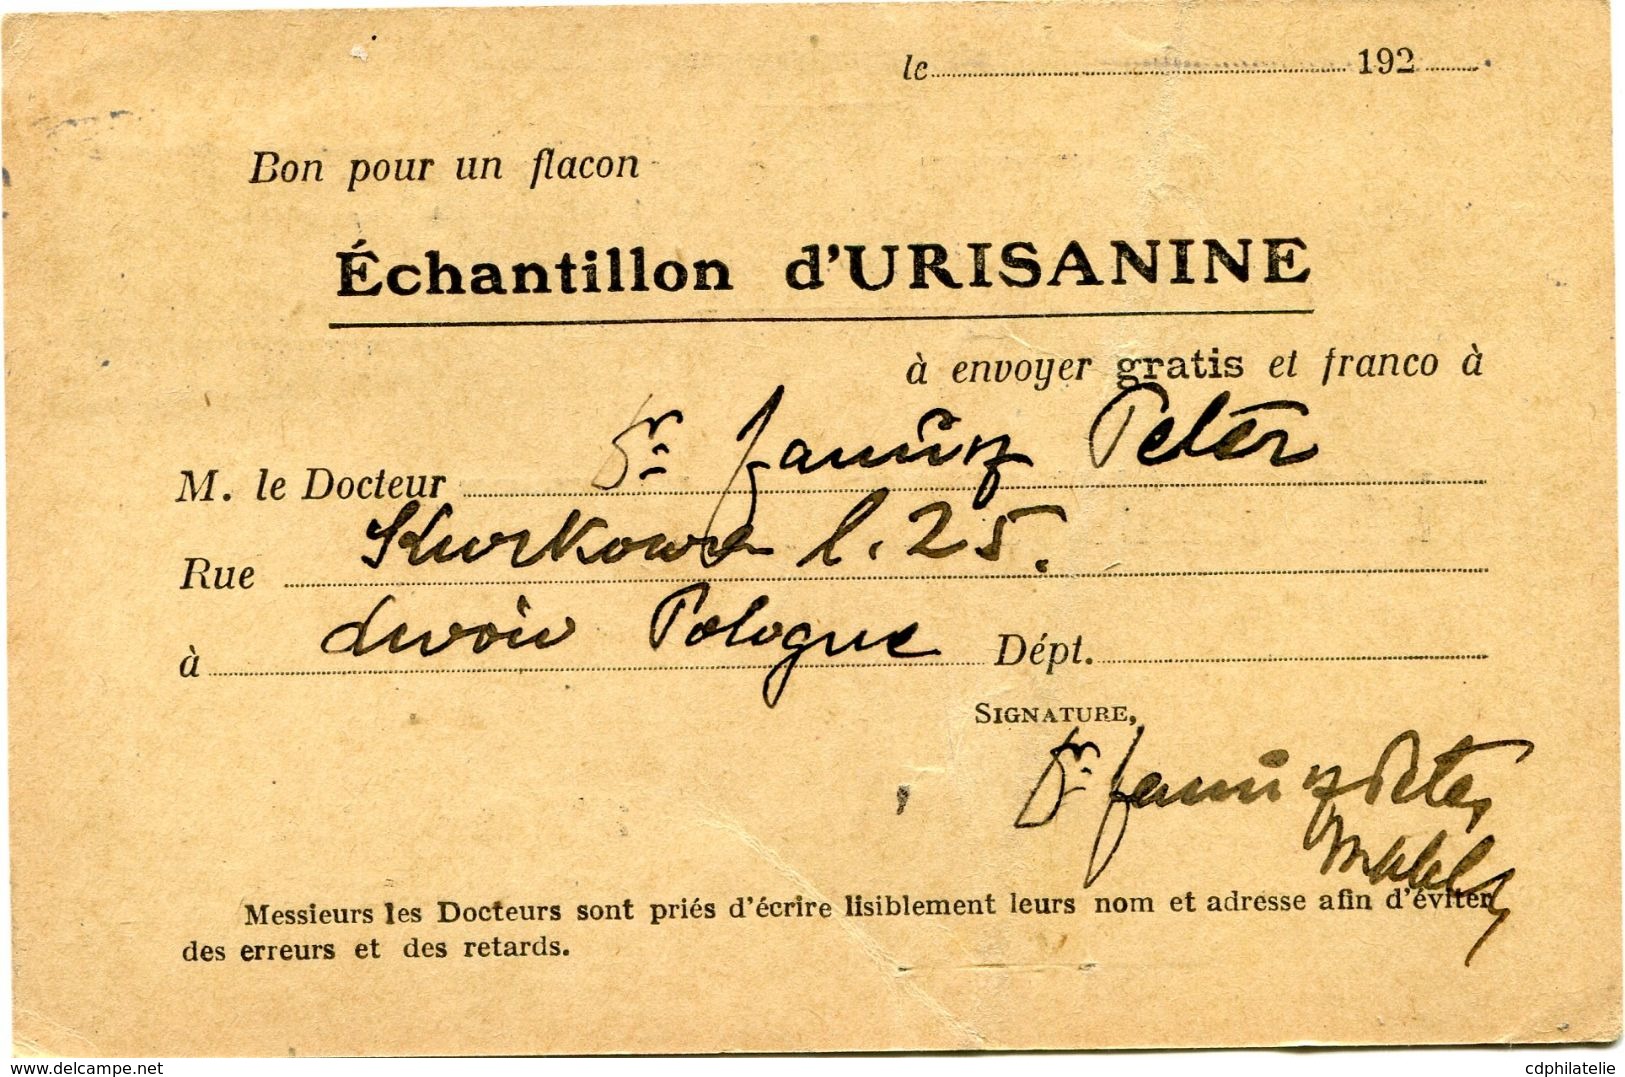 le 192
Bon pour un flacon
Échantillon d'URISANINE
à envoyer gratis et franco à
M. le Docteur Dr Janusz Peter
Rue Kurkowa l. 25.
à Lwów Pologne Dépt.
SIGNATURE,
Dr Janusz Peter
Messieurs les Docteurs sont priés d'écrire lisiblement leurs nom et adresse afin d'éviter
des erreurs et des retards.
delcampe.net
cdphilatelie